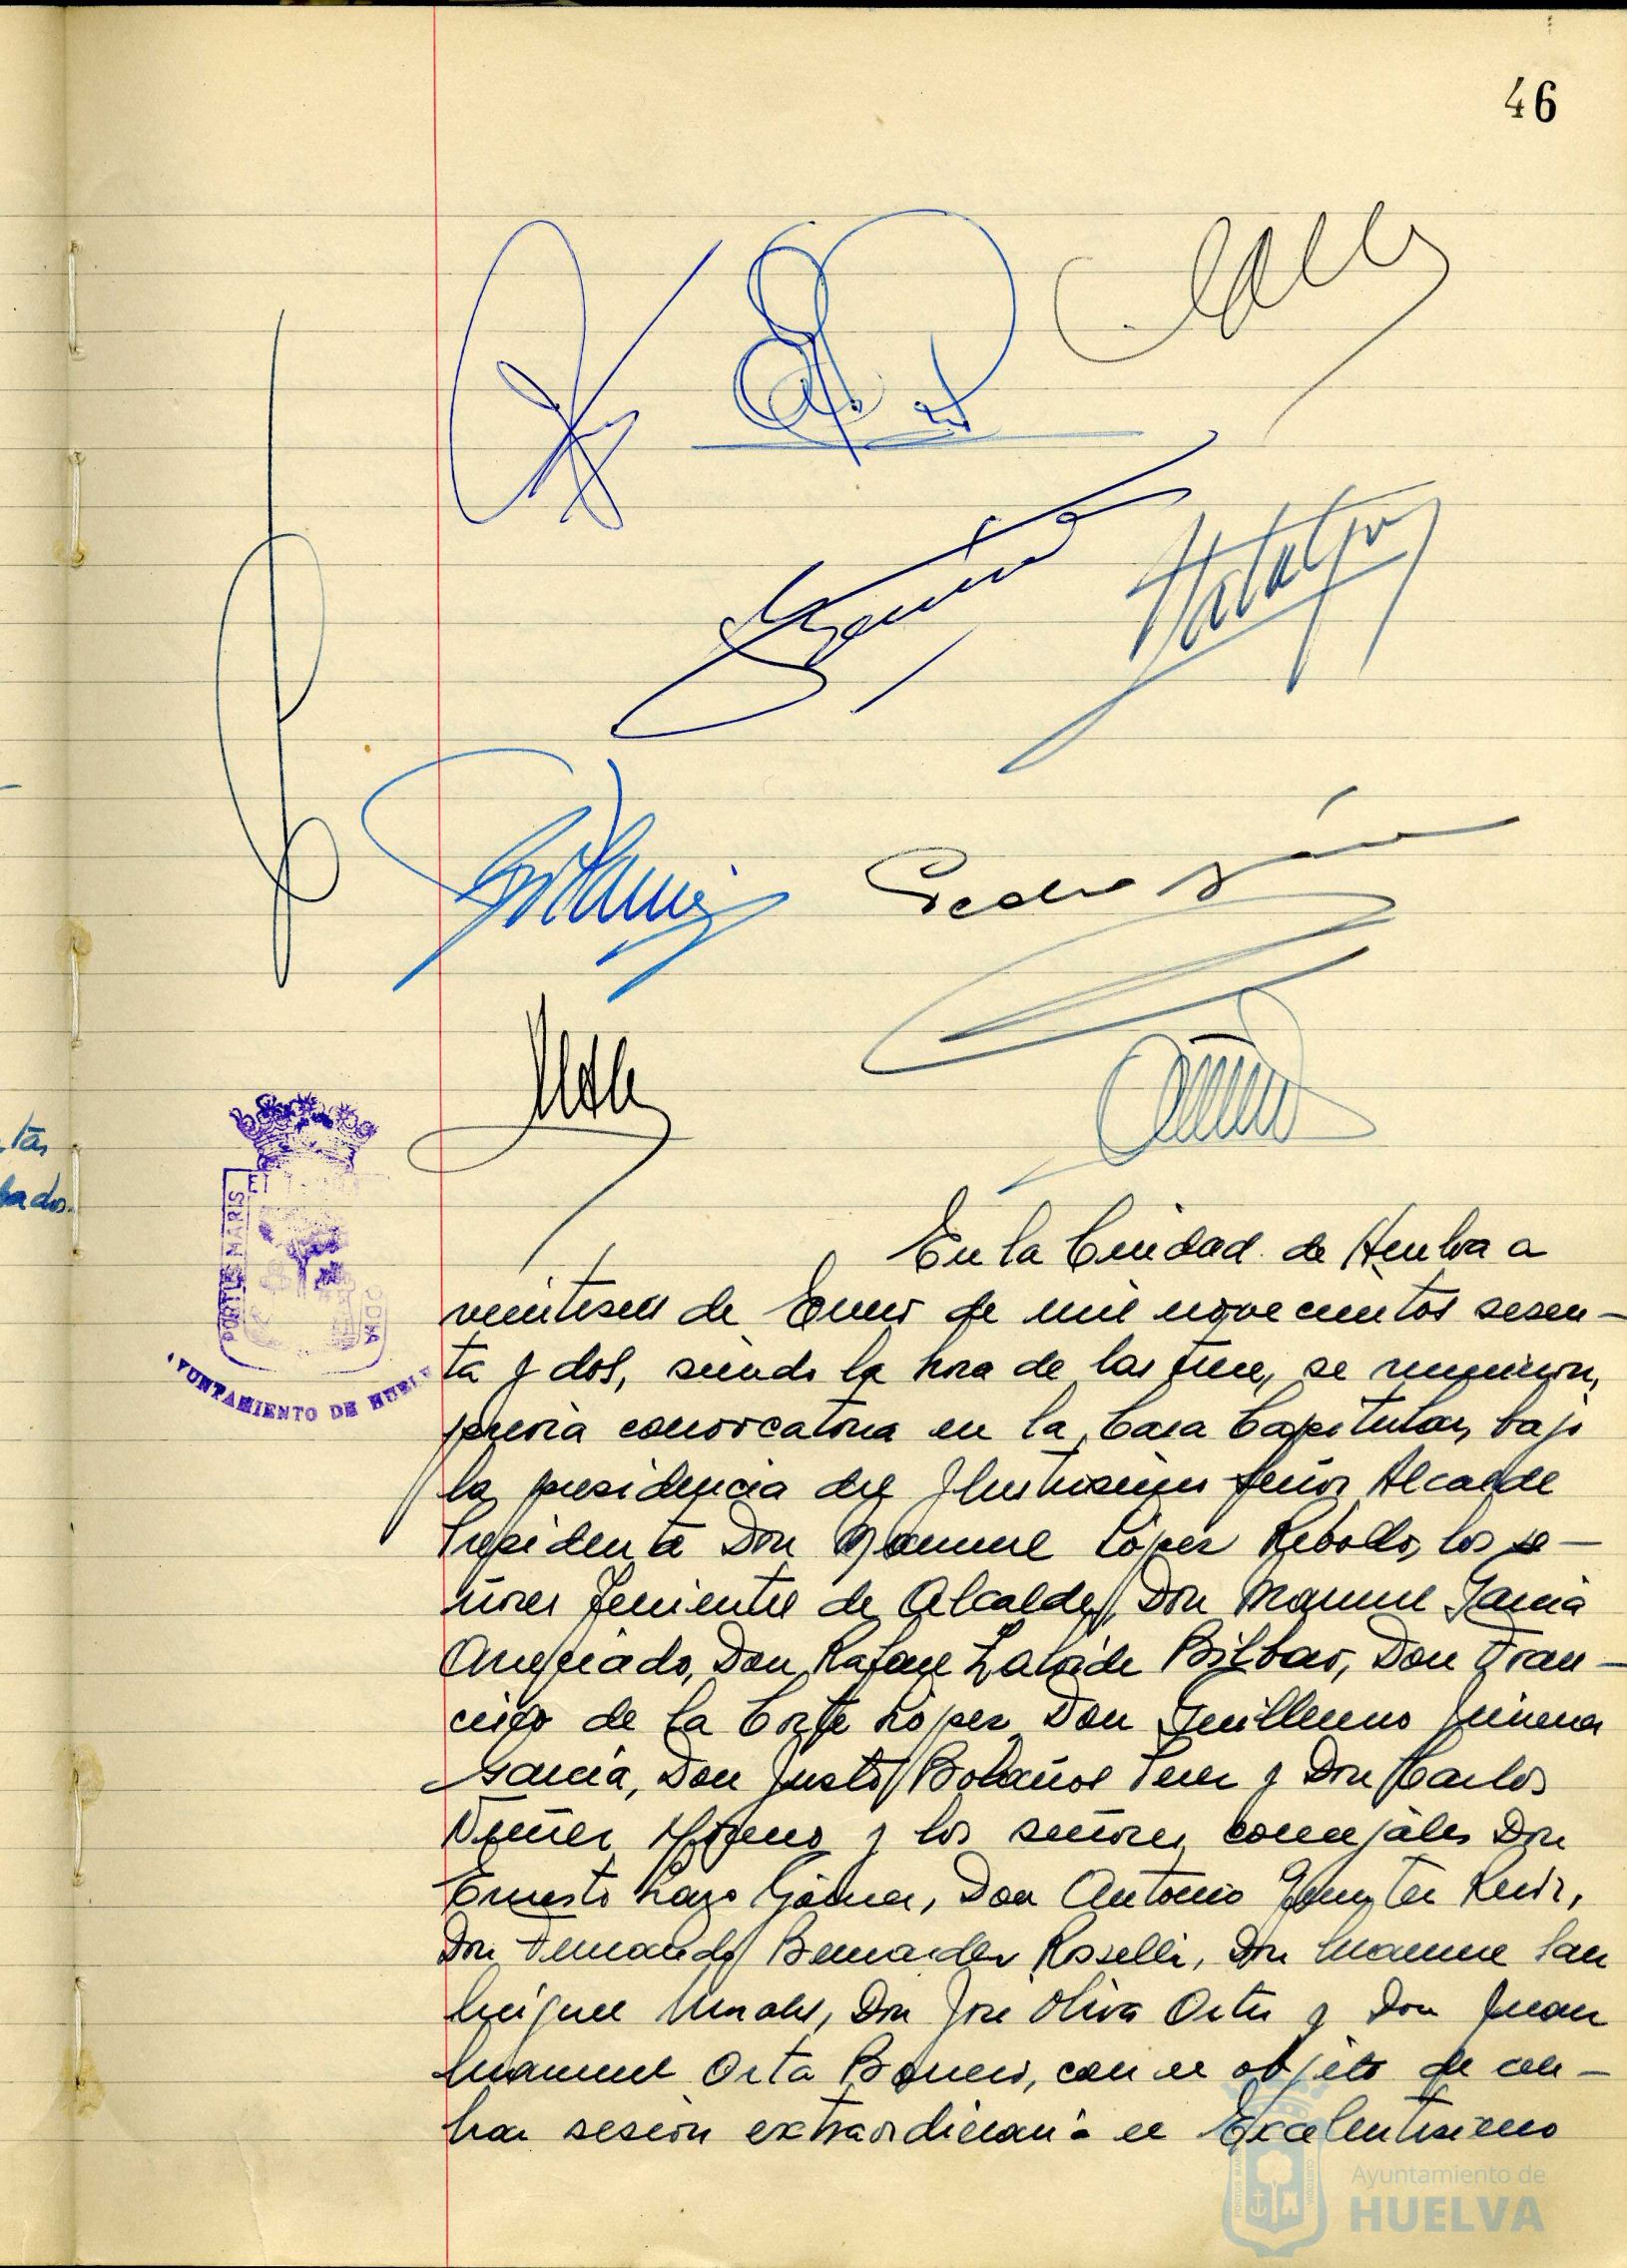 46
Pedro
tas
bados.
PORTUS MARIS
ET
AYUNTAMIENTO DE HUELVA
En la Ciudad de Huelva a
veintiseis de Enero de mil novecientos sesen-
ta y dos, siendo la hora de las trece, se reunieron,
previa convocatoria en la Casa Capitular, bajo
la presidencia del Ilustrisimo Señor Alcalde
Presidente Don Manuel López Rebollo, los se-
ñores Tenientes de Alcalde, Don Manuel Garcia
Don Rafael Bilbao, Don Fran-
cisco de la Corte López Don Guillermo Jimenez
García, Don Justo Bolaños Perez y Don Carlos
Nuñez Moreno y los señores concejales Don
Ernesto Lazo Gómez, Don Antonio Ruiz,
Don Fernando Bernardez Roselli, Don Manuel San
Miguel Don José Oliva Ortiz y Don Juan
Manuel Orta Borrero, con el objeto de cele-
brar sesión extraordinaria el Excelentisimo
Ayuntamiento de
HUELVA